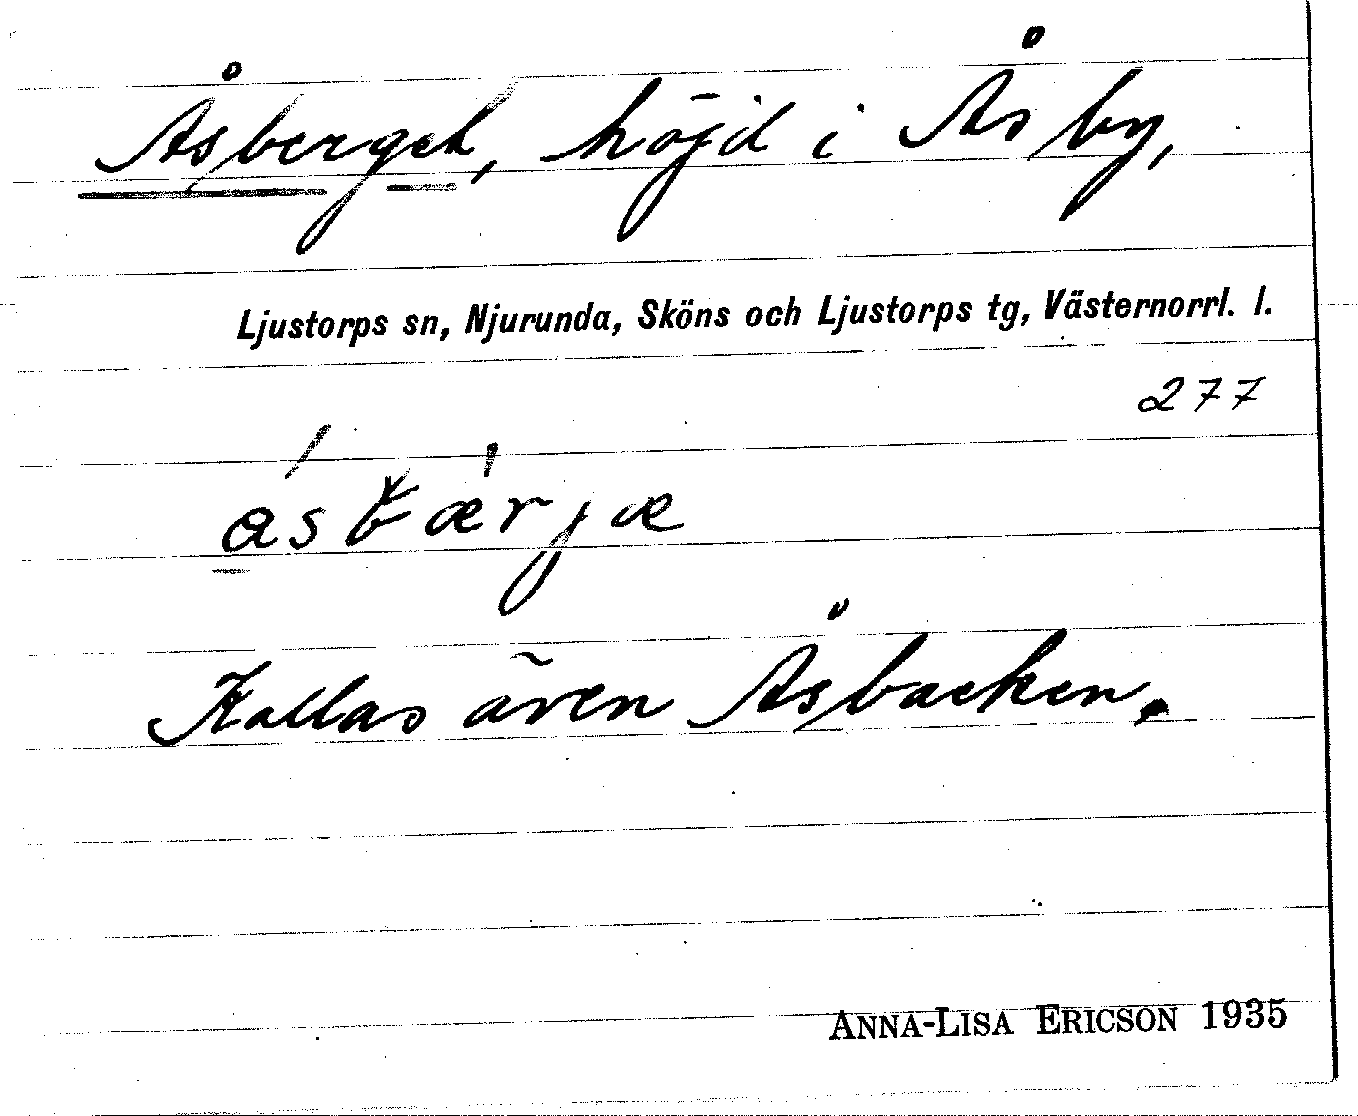 Åsberget, höjd i Ås by,
Ljustorps sn, Njurunda, Sköns och Ljustorps tg, Västernorrl. l.
277
Kallas även Åsbacken.
ANNA-LISA ERICSON 1935